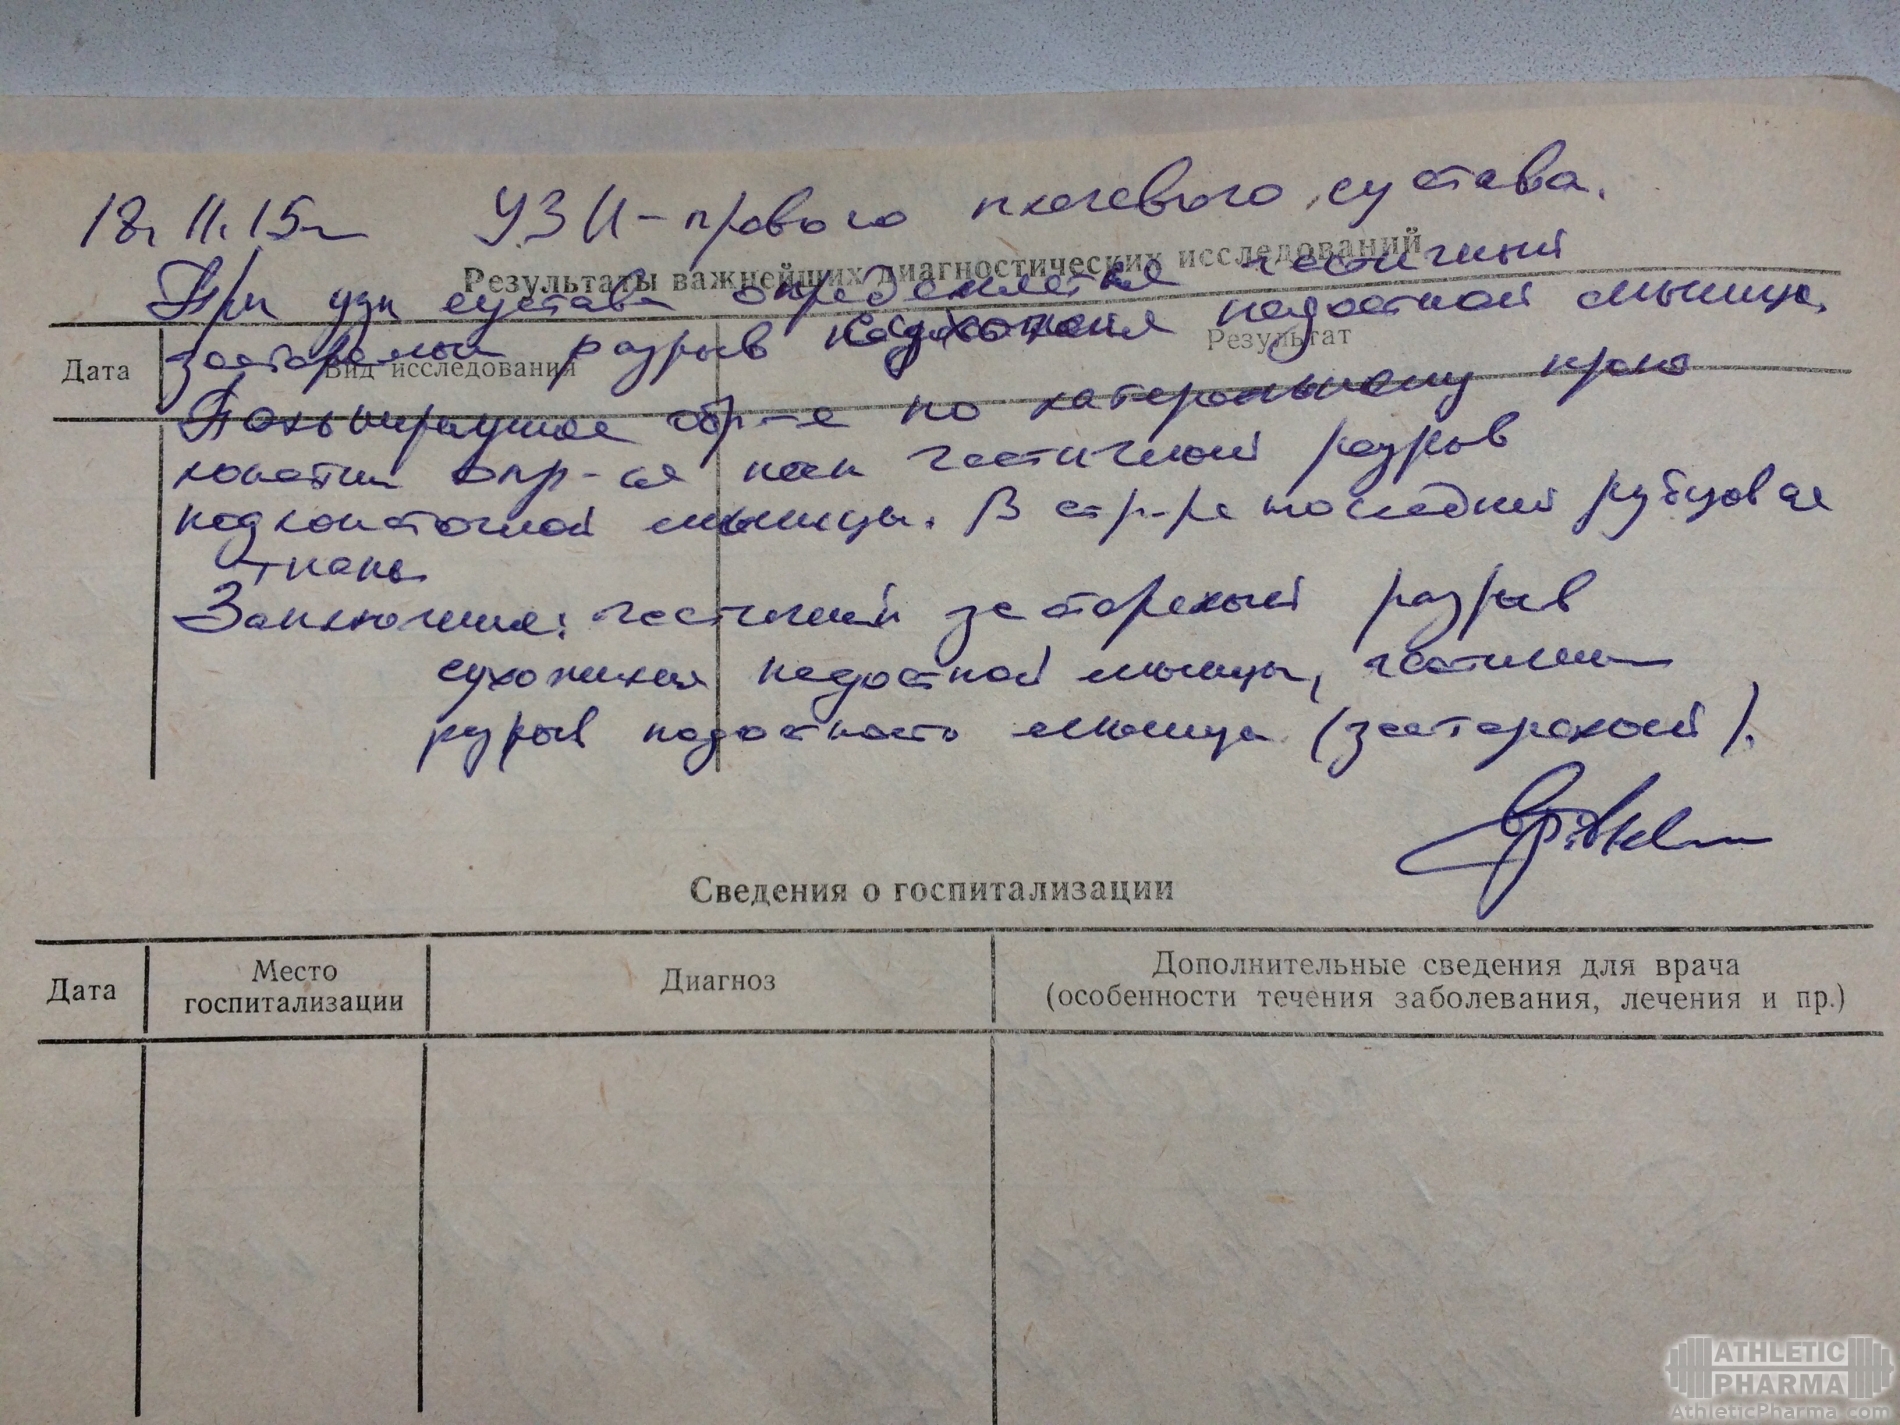 18. 11. 15г УЗИ - правого плечевого сустава.
Результаты важнейших диагностических исследований
При узи сустава определяется частичный
Дата Вид исследования Результат
застарелый разрыв сухожилия надостной мышцы.
Пальпируемое обр-е по латеральному краю
лопатки опр-ся как частичный разрыв
подлопаточной мышцы. В стр-ре последней рубцовая
ткань
Заключение: частичный застарелый разрыв
сухожилия надостной мышцы, частичный
разрыв мышцы (застарелый).
Сведения о госпитализации
Дата Место госпитализации Диагноз Дополнительные сведения для врача
(особенности течения заболевания, лечения и пр.)
ATHLETIC
PHARMA
AthleticPharma.com